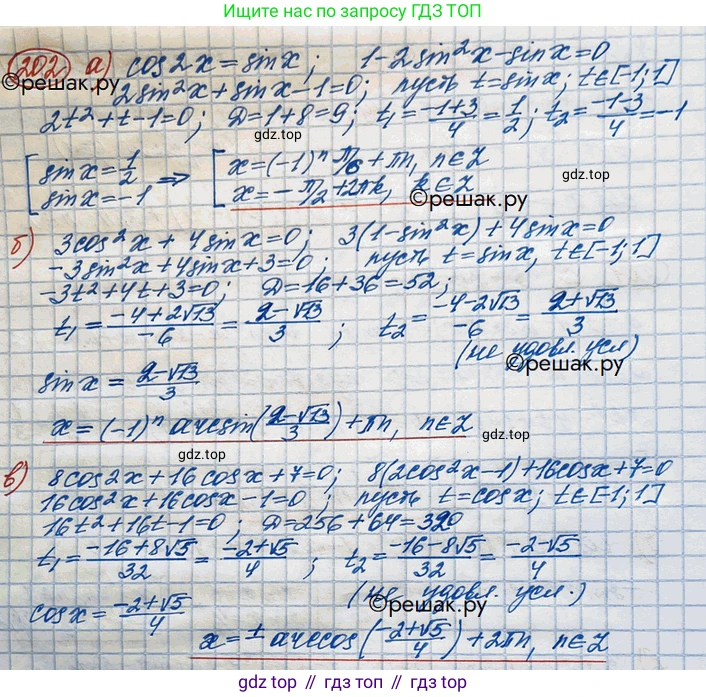 Ищите ответы по запросу ГДЗ ТОП
202 а) cos2x = sinx; 1-2sin²x-sinx=0
©reшак.ру
2sin²x+sinx-1=0; пусть t=sinx; t∈[-1;1]
2t²+t-1=0; D=1+8=9; t₁=(-1+3)/4=1/2; t₂=(-1-3)/4=-1
gdz.top
gdz.top
[sinx=1/2 => [x=(-1)ⁿ π/6+πn, n∈Z
[sinx=-1 [x=-π/2+2πk, k∈Z
©reшак.ру
б) 3cos²x + 4sinx=0; 3(1-sin²x)+4sinx=0
-3sin²x+4sinx+3=0; пусть t=sinx, t∈[-1;1]
gdz.top
-3t²+4t+3=0; D=16+36=52;
t₁=(-4+2√13)/-6=(2-√13)/3; t₂=(-4-2√13)/-6=(2+√13)/3
(не удовл. усл)
gdz.top
©reшак.ру
sinx=(2-√13)/3
x=(-1)ⁿ arcsin((2-√13)/3)+πn, n∈Z
gdz.top
в) 8cos2x+16cosx+7=0; 8(2cos²x-1)+16cosx+7=0
16cos²x+16cosx-1=0; пусть t=cosx; t∈[-1;1]
gdz.top
16t²+16t-1=0; D=256+64=320
t₁=(-16+8√5)/32=(-2+√5)/4; t₂=(-16-8√5)/32=(-2-√5)/4
(не удовл. усл.)
©reшак.ру
cosx=(-2+√5)/4
x=±arccos((-2+√5)/4)+2πn, n∈Z
gdz.top
gdz.top // gdz.top // gdz.top // gdz.top // gdz.top // gdz.top